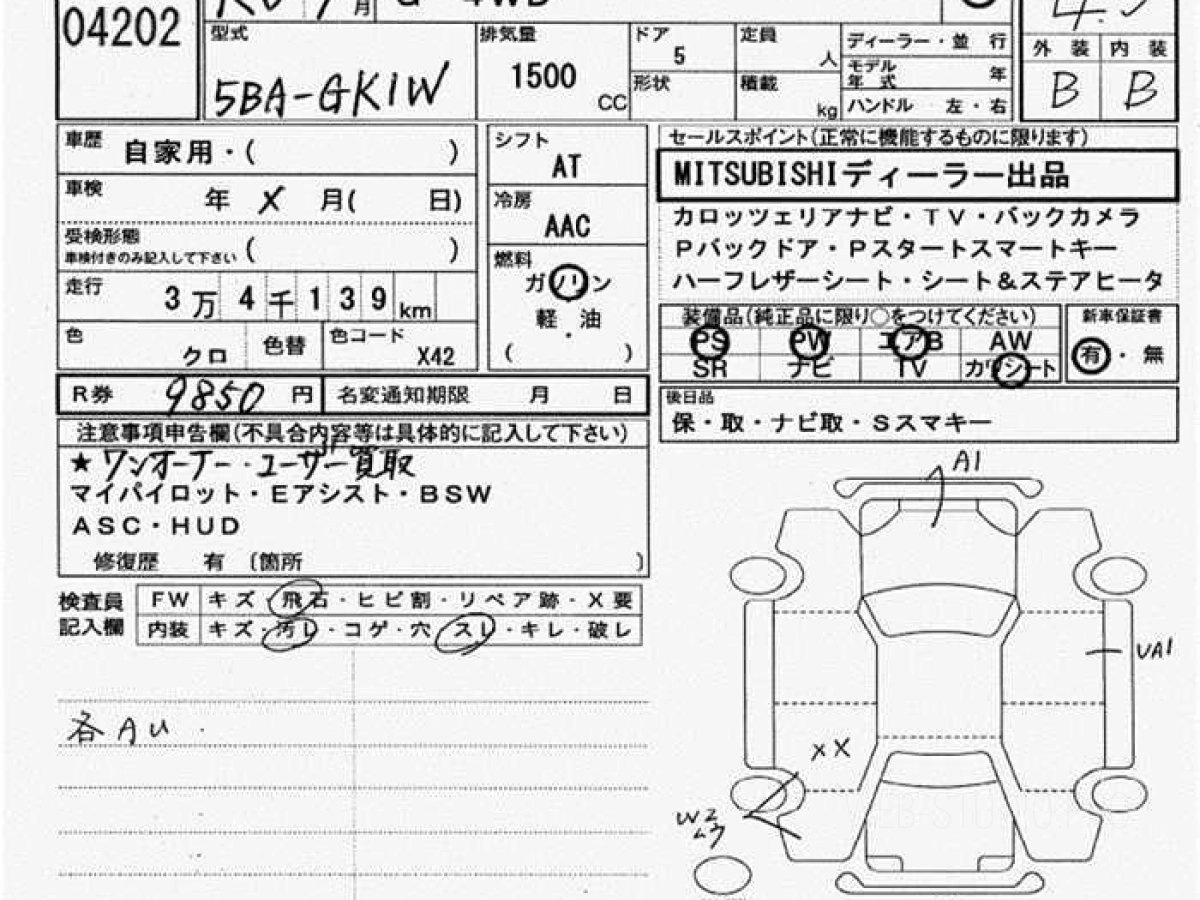 04202
G 4WD
4.5
型式
5BA-GK1W
排気量
1500
CC
ドア
5
形状
定員
人
積載
kg
ディーラー・並 行
モデル
年 式
年
ハンドル 左・右
外 装
内 装
B
B
車歴
自家用・( )
車検
年 X 月( 日)
受検形態
車検付きのみ記入して下さい ( )
走行
3万4千139km
色
クロ
色替
色コード
X42
シフト
AT
冷房
AAC
燃料
ガソリン
軽 油
・
( )
セールスポイント(正常に機能するものに限ります)
MITSUBISHIディーラー出品
カロッツェリアナビ・TV・バックカメラ
Pバックドア・Pスタートスマートキー
ハーフレザーシート・シート&ステアヒータ
装備品(純正品に限り○をつけてください)
PS PW エアB AW
SR ナビ TV カワシート
新車保証書
有・無
R券 9850 円
名変通知期限 月 日
後日品
保・取・ナビ取・Sスマキー
注意事項申告欄(不具合内容等は具体的に記入して下さい)
★ワンオーナー・ユーザー買取
マイパイロット・Eアシスト・BSW
ASC・HUD
修復歴 有 〔箇所 〕
検査員
記入欄
FW キズ・飛石・ヒビ割・リペア跡・X要
内装 キズ・汚レ・コゲ・穴・スレ・キレ・破レ
各AU
A1
UA1
XX
W2